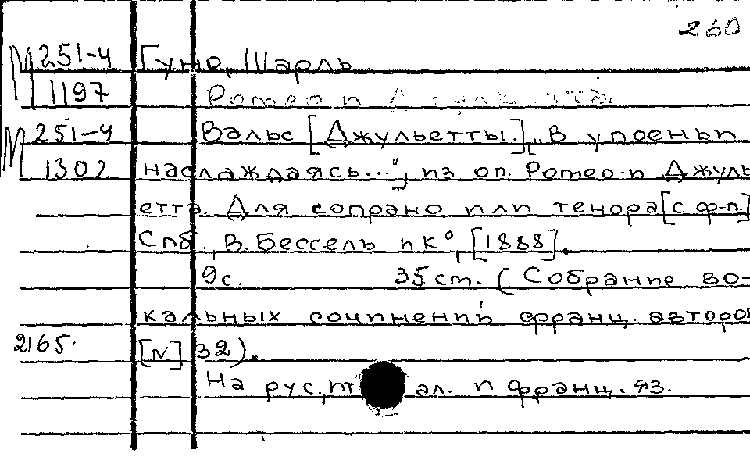 260
М 251-4 Гуно, Шарль
1197 Ромео и Джульетта
М 251-4 Вальс [Джульетты.] „В упоеньи
1302 наслаждаясь...", из оп. Ромео и Джуль
етта. Для сопрано или тенора [с ф-п.]
Спб., В. Бессель и К°, [1888].
9с. 35 ст. (Собрание во-
кальных сочинений франц. авторов
2165. [№] 32).
На рус., ал. и франц. яз.